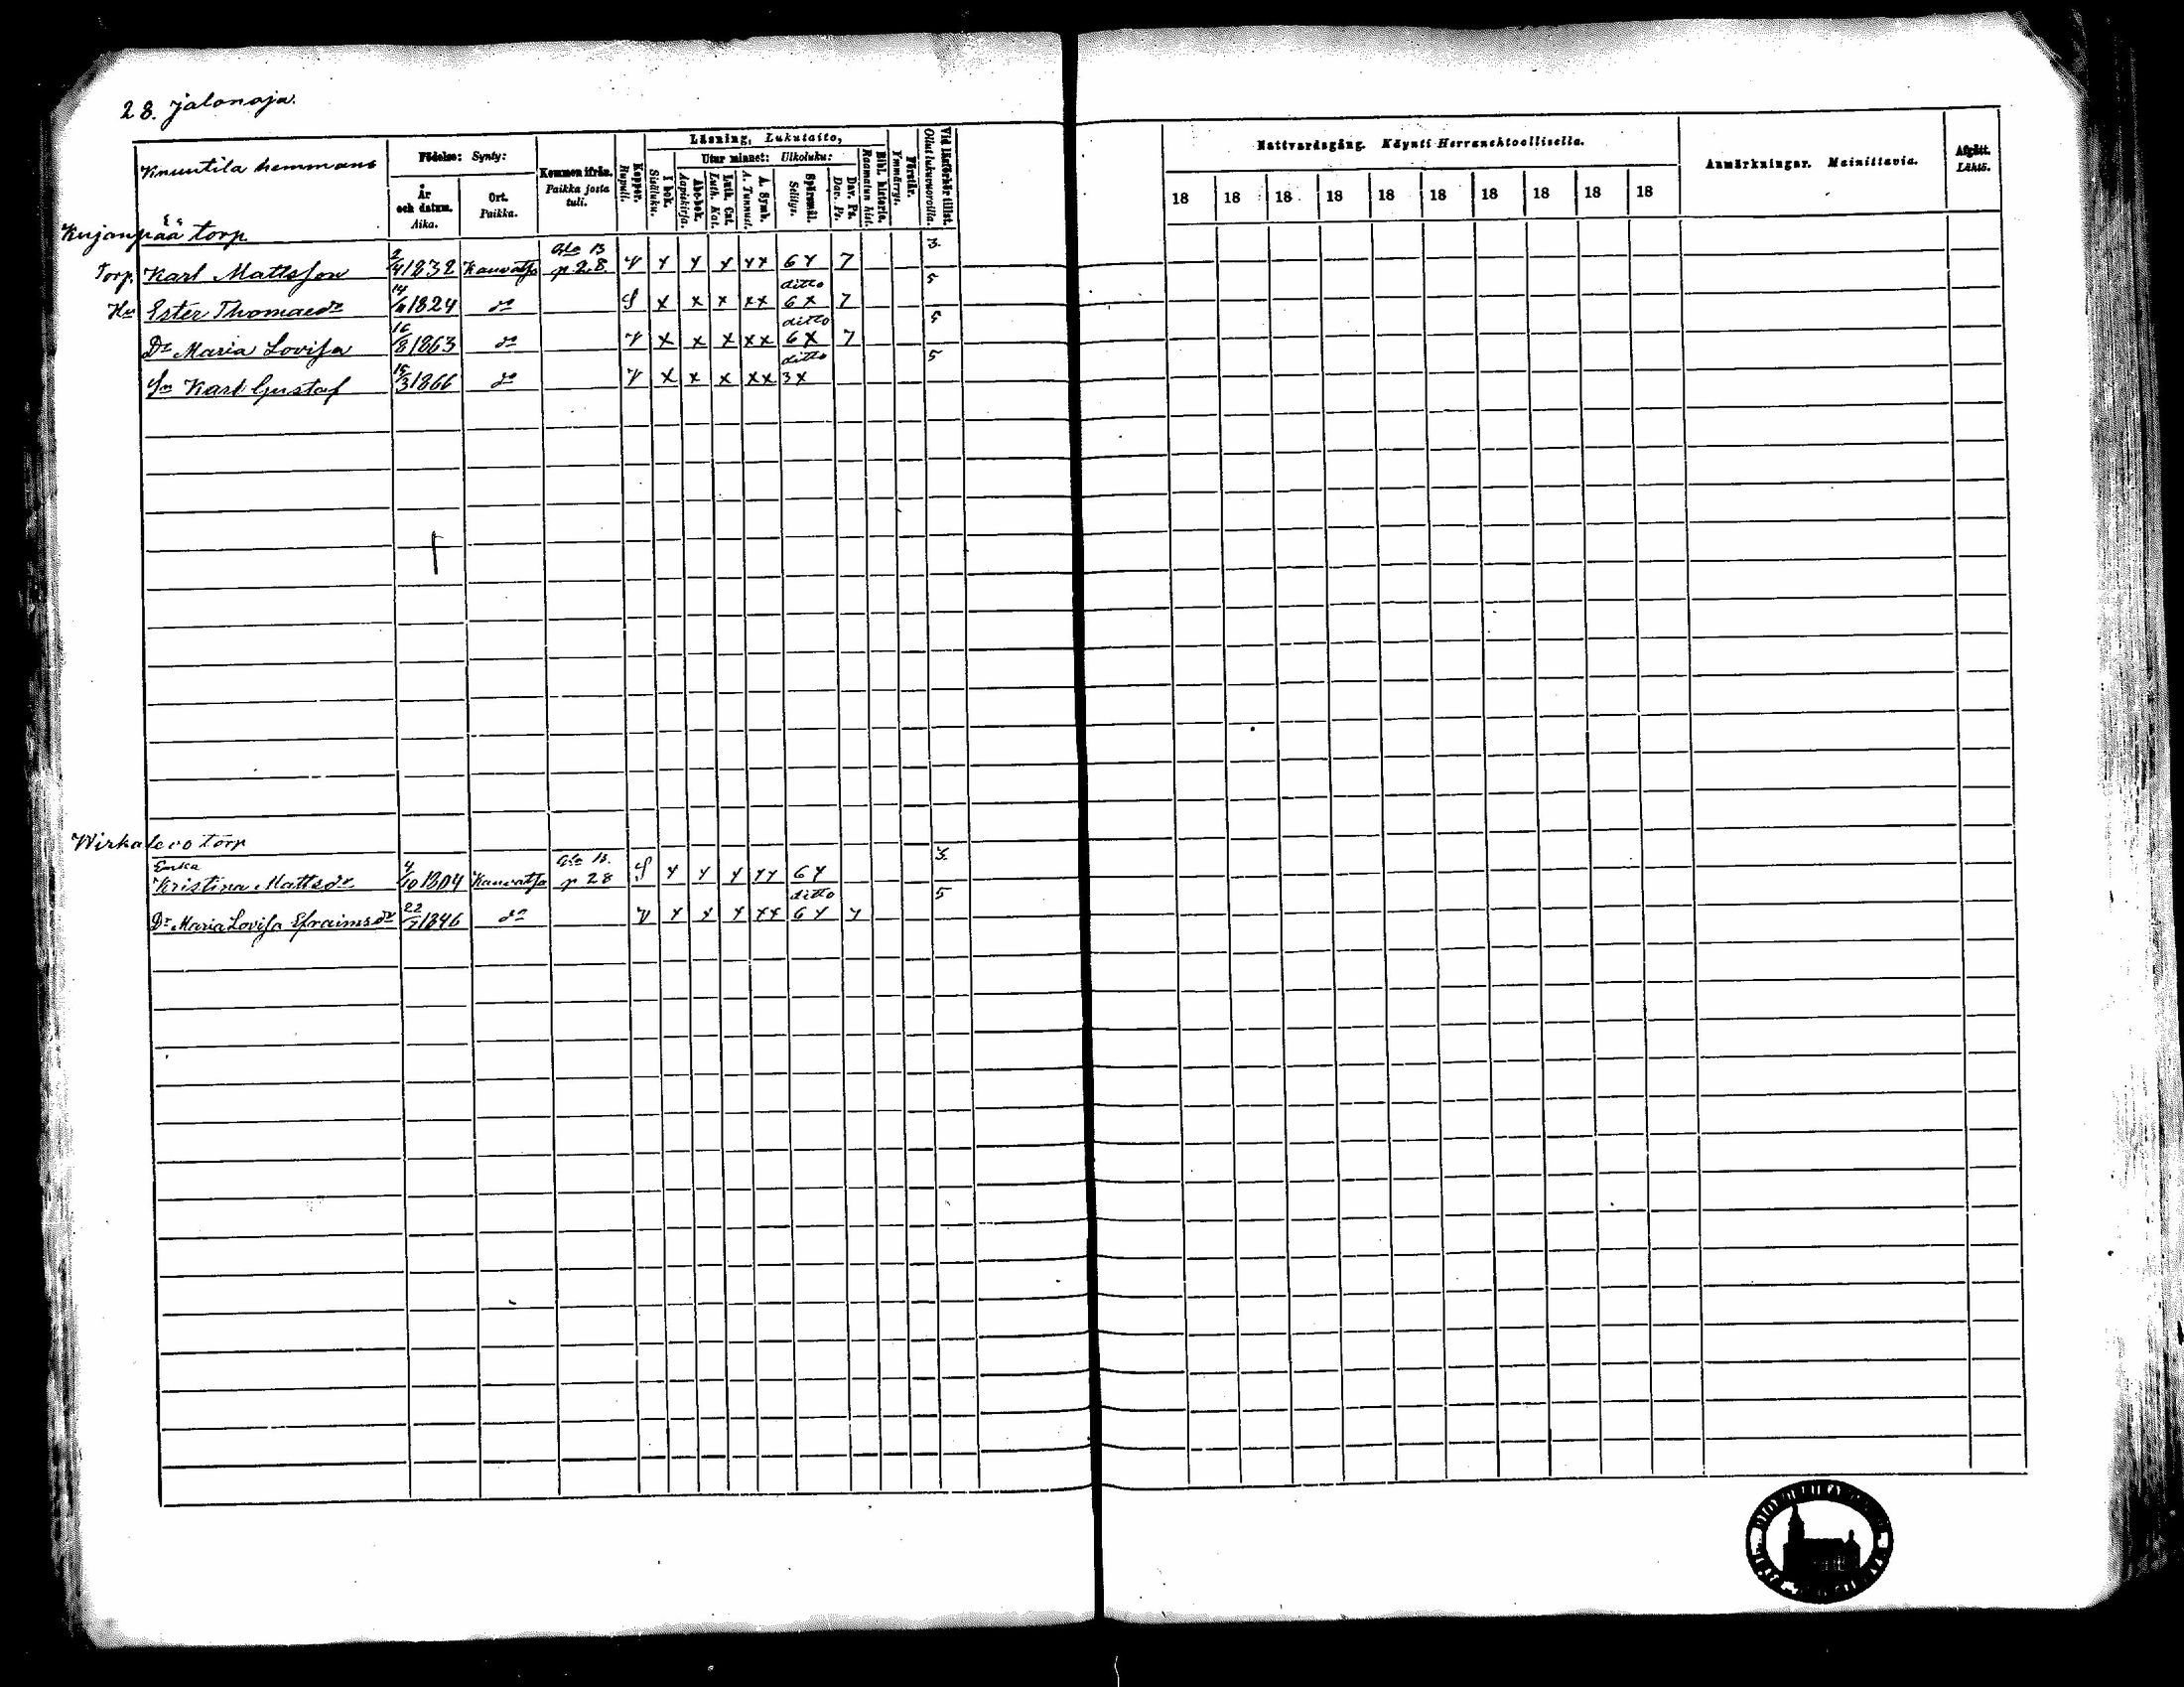 28. Jalonoja.
Knuutila hemmans
Födelse: Synty:
År och datum. Aika.
Ort. Paikka.
Kommen ifrån. Paikka josta tuli.
Koppor. Rupuli.
Läsning, Lukutaito,
I bok. Sisäluku.
Utur minnet: Ulkoluku:
Abc-bok. Aapiskirja.
Luth. Cat. Luth. Kat.
A. Symb. A. Tunnust.
Spörsmål. Selitys.
Dav. Ps. Dav. Ps.
Bibl. historia. Raamatun hist.
Förstår. Ymmärrys.
Vid läsförhör tillst. Ollut lukuvuoroilla.
Nattvardsgång. Käynti Herranehtoollisella.
18 18 18 18 18 18 18 18 18 18
Anmärkningar. Mainittavia.
Afgått. Lähtö.
Kujanpää torp.
Torp. Karl Mattsson 2/4 1832 Kauvatsa Gla B p. 28. V x x x xx 6x 7 3.
Hu Ester Thomaedr 14 1824 do S x x x xx ditto 6x 7 5
Dr Maria Lovisa 16/8 1863 do V x x x xx ditto 6x 7 5
Sn Karl Gustaf 15/3 1866 do V x x x xx ditto 3x 5
Wirkalevo torp
Enka
Kristina Mattsdr 4/10 1804 Kauvatsa Gla B. p 28 S x x x xx 6x 3.
Dr Maria Lovisa Efraimsdr 22/7 1846 do V x x x xx ditto 6x 7 5